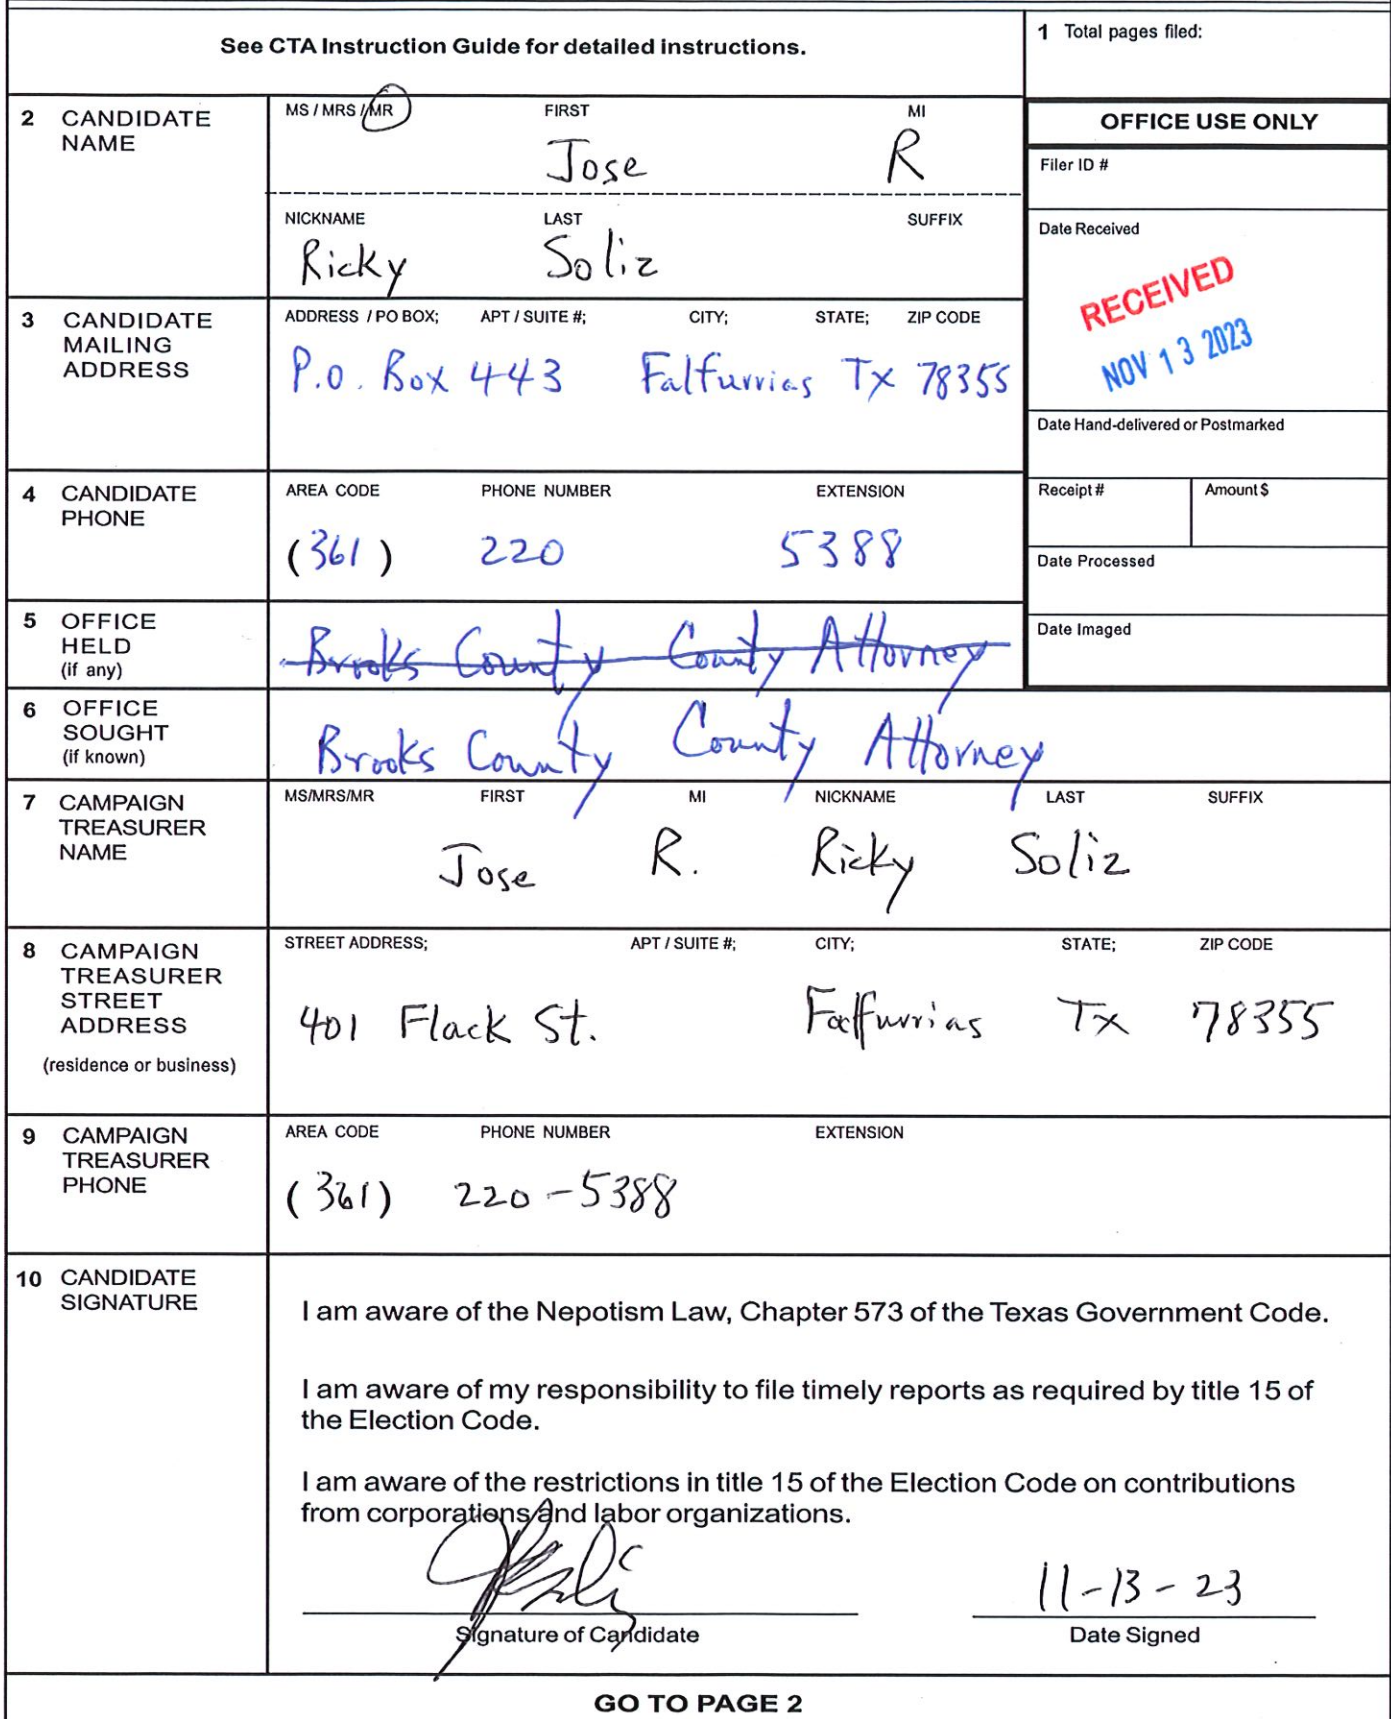 See CTA Instruction Guide for detailed instructions.
1 Total pages filed:
2 CANDIDATE NAME
MS / MRS / MR FIRST MI
Jose R
NICKNAME LAST SUFFIX
Ricky Soliz
OFFICE USE ONLY
Filer ID #
Date Received
RECEIVED
NOV 13 2023
3 CANDIDATE MAILING ADDRESS
ADDRESS / PO BOX; APT / SUITE #; CITY; STATE; ZIP CODE
P.O. Box 443 Falfurrias Tx 78355
Date Hand-delivered or Postmarked
4 CANDIDATE PHONE
AREA CODE PHONE NUMBER EXTENSION
(361) 220 5388
Receipt # Amount $
Date Processed
Date Imaged
5 OFFICE HELD (if any)
Brooks County County Attorney
6 OFFICE SOUGHT (if known)
Brooks County County Attorney
7 CAMPAIGN TREASURER NAME
MS/MRS/MR FIRST MI NICKNAME LAST SUFFIX
Jose R. Ricky Soliz
8 CAMPAIGN TREASURER STREET ADDRESS
(residence or business)
STREET ADDRESS; APT / SUITE #; CITY; STATE; ZIP CODE
401 Flack St. Falfurrias Tx 78355
9 CAMPAIGN TREASURER PHONE
AREA CODE PHONE NUMBER EXTENSION
(361) 220-5388
10 CANDIDATE SIGNATURE
I am aware of the Nepotism Law, Chapter 573 of the Texas Government Code.
I am aware of my responsibility to file timely reports as required by title 15 of
the Election Code.
I am aware of the restrictions in title 15 of the Election Code on contributions
from corporations and labor organizations.
11-13-23
Signature of Candidate Date Signed
GO TO PAGE 2